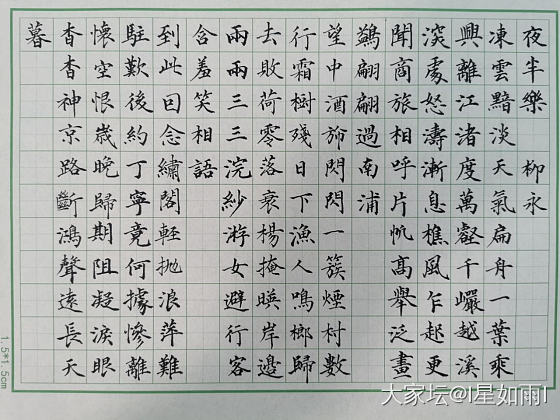 夜半樂 柳永
凍雲黯淡天氣扁舟一葉乘
興離江渚度萬壑千巖越溪
深處怒濤漸息樵風乍起更
聞商旅相呼片帆高舉泛畫
鷁翩翩過南浦
望中酒旆閃閃一簇煙村數
行霜樹殘日下漁人鳴榔歸
去敗荷零落衰楊掩暎岸邊
兩兩三三浣紗游女避行客
含羞笑相語
到此因念繡閣輕拋浪萍難
駐歎後約丁寧竟何據慘離
懷空恨歲晚歸期阻凝淚眼
杳杳神京路斷鴻聲遠長天
暮
1.5*1.5cm
大家坛@I星如雨I